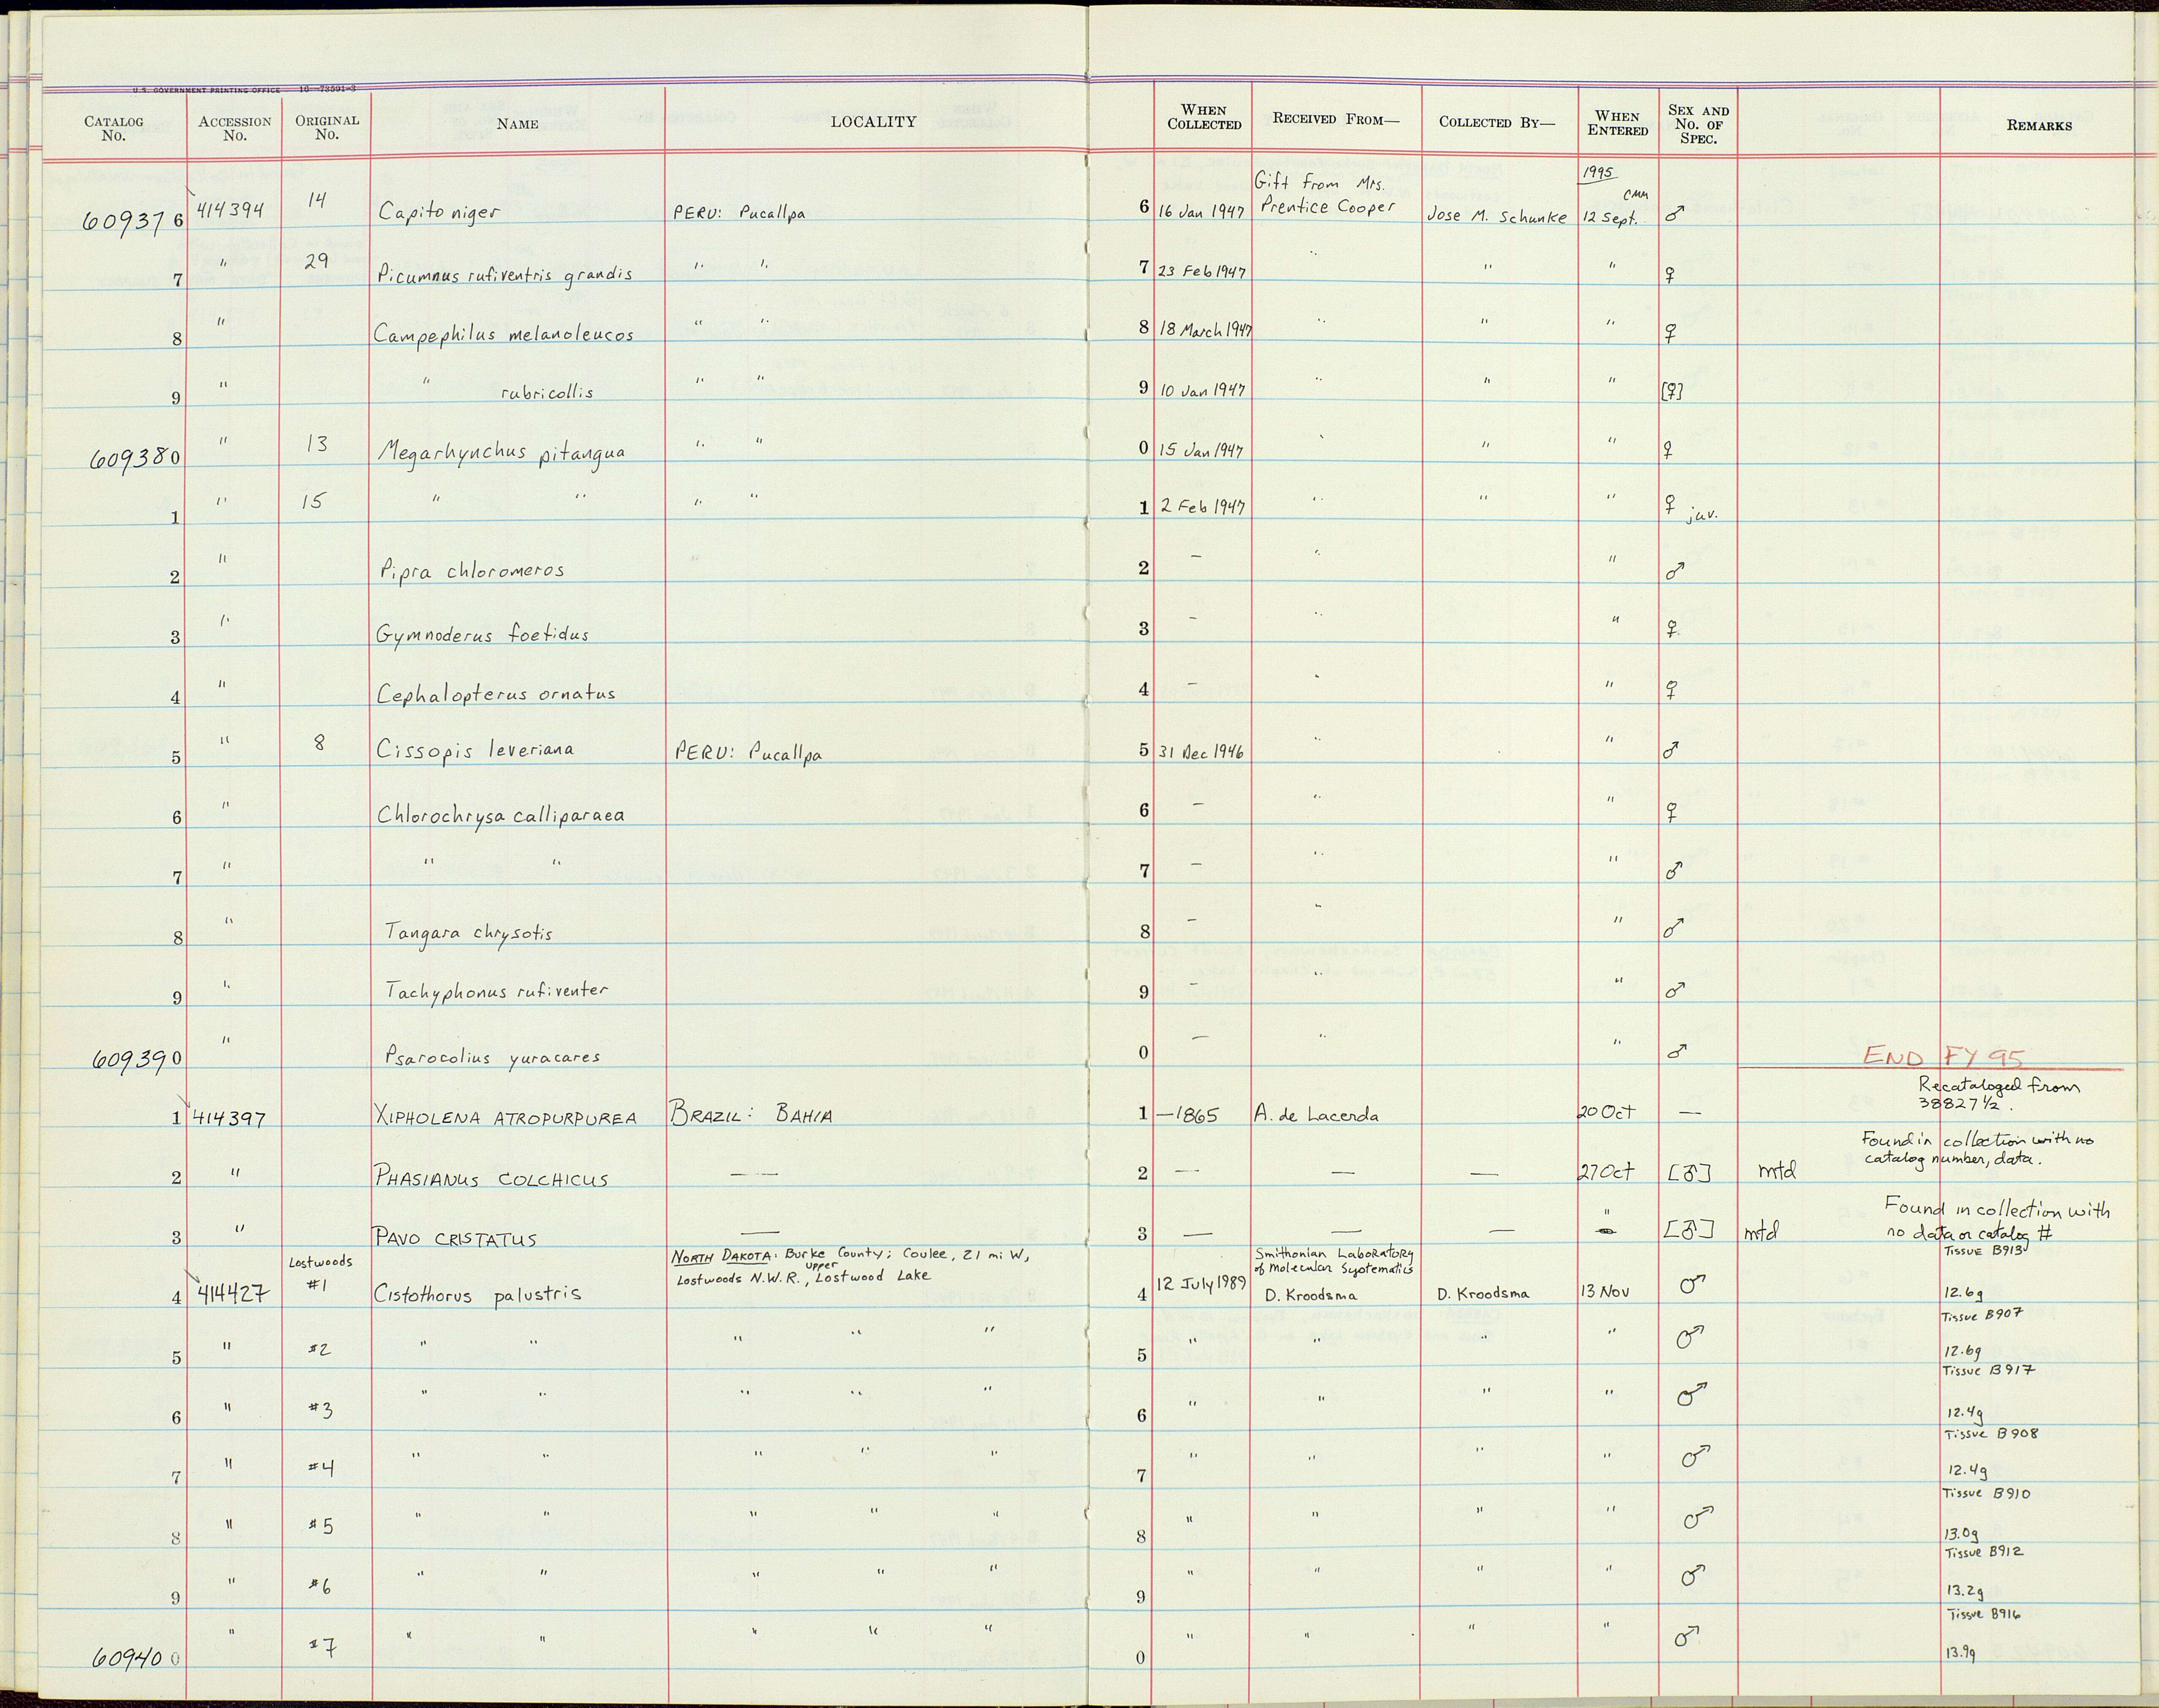 U.S. GOVERNMENT PRINTING OFFICE 16—73591-3
CATALOG No. ACCESSION No. ORIGINAL No. NAME LOCALITY WHEN COLLECTED RECEIVED FROM— COLLECTED BY— WHEN ENTERED SEX AND No. OF SPEC. REMARKS
1995
Gift from Mrs. cmm
609376 414394 14 Capito niger PERU: Pucallpa 6 16 Jan 1947 Prentice Cooper Jose M. Schunke 12 Sept. ♂
7 " 29 Picumnus rufiventris grandis " " 7 23 Feb 1947 " " " ♀
8 " Campephilus melanoleucos " " 8 18 March 1947 " " " ♀
9 " " rubricollis " " 9 10 Jan 1947 " " " [♀]
609380 " 13 Megarhynchus pitangua " " 0 15 Jan 1947 " " " ♀
1 " 15 " " " " 1 2 Feb 1947 " " " ♀ juv.
2 " Pipra chloromeros 2 — " " ♂
3 " Gymnoderus foetidus 3 — " " ♀
4 " Cephalopterus ornatus 4 — " " ♀
5 " 8 Cissopis leveriana PERU: Pucallpa 5 31 Dec 1946 " " ♂
6 " Chlorochrysa calliparaea 6 — " " ♀
7 " " " 7 — " " ♂
8 " Tangara chrysotis 8 — " " ♂
9 " Tachyphonus rufiventer 9 — " " ♂
609390 " Psarocolius yuracares 0 — " " ♂ END FY 95
Recataloged from
1 414397 XIPHOLENA ATROPURPUREA BRAZIL: BAHIA 1 —1865 A. de Lacerda 20 Oct — 38827 1/2.
Found in collection with no
catalog number, data.
2 " PHASIANUS COLCHICUS — — 2 — — — 27 Oct [♂] mtd
Found in collection with
3 " PAVO CRISTATUS — 3 — — — " [♂] mtd no data or catalog #
Lostwoods NORTH DAKOTA: Burke County; Coulee, 21 mi W, Smithonian Laboratory Tissue B913
upper of Molecular Systematics
Lostwoods N.W.R., Lostwood Lake
4 414427 #1 Cistothorus palustris 4 12 July 1989 D. Kroodsma D. Kroodsma 13 Nov ♂ 12.6g
Tissue B907
5 " #2 " " " " " 5 " " " " ♂ 12.6g
Tissue B917
6 " #3 " " " " " 6 " " " " ♂ 12.4g
Tissue B908
7 " #4 " " " " " 7 " " " " ♂ 12.4g
Tissue B910
8 " #5 " " " " " 8 " " " " ♂ 13.0g
Tissue B912
9 " #6 " " " " " 9 " " " " ♂ 13.2g
Tissue B916
609400 " #7 " " " " " 0 " " " " ♂ 13.9g